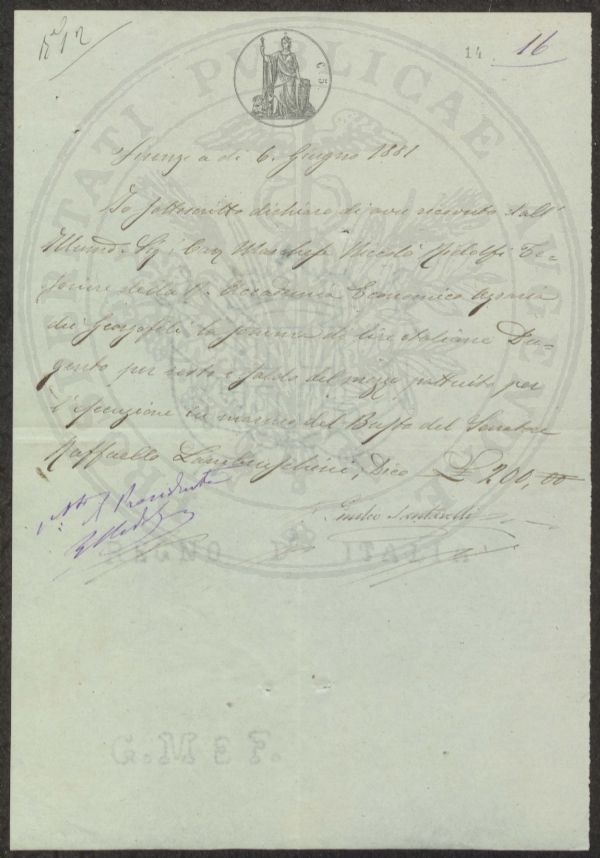 N° 12
14
16
C 5
PROSPERITATI PUBLICAE AUGENDAE
Firenze a dì 6. Giugno 1881
Io sottoscritto dichiaro di aver ricevuto dall'
Illmo Sig. Cav. Marchese Niccolò Ridolfi Te-
soriere della R. Accademia Economico Agraria
dei Georgofili la somma di lire italiane Du-
gento per resto e saldo del prezzo pattuito per
l'esecuzione in marmo del Busto del Senatore
Raffaello Lambruschini, Dico £ 200,00
Il Presidente
Emilio Santarelli
G. M E F.